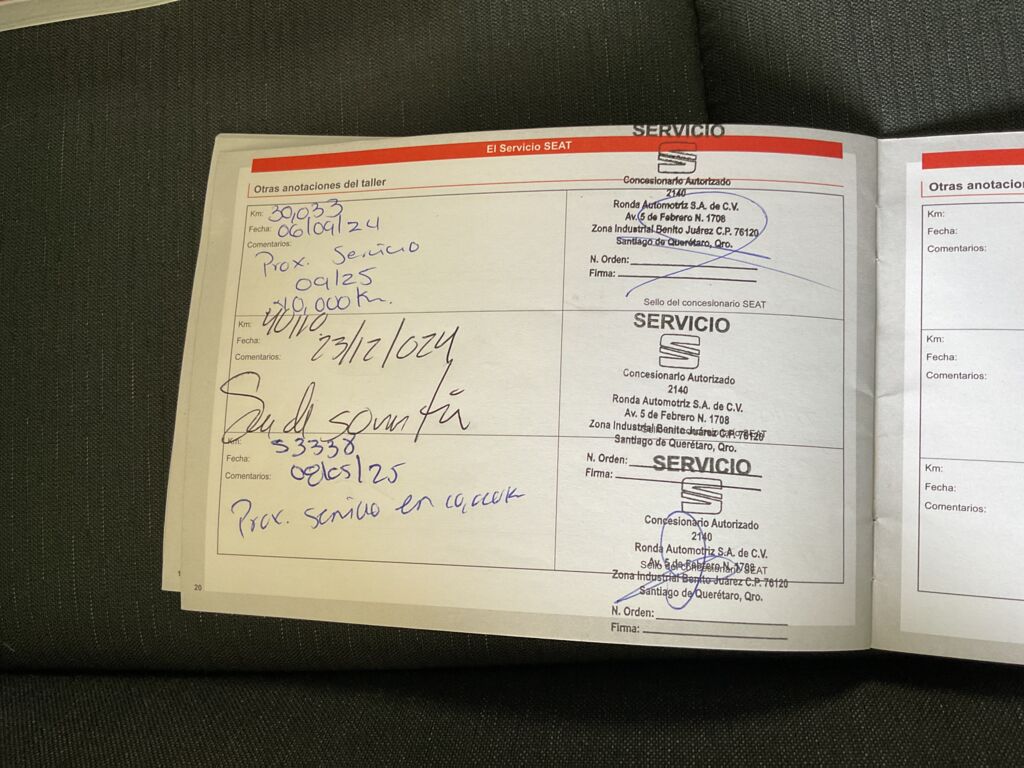 El Servicio SEAT
Otras anotaciones del taller
Km: 30,033
Fecha: 06/09/24
Comentarios:
Prox. Servicio
09/25
10,000 Km.
SERVICIO
Concesionario Autorizado
2140
Ronda Automotriz S.A. de C.V.
Av. 5 de Febrero N. 1708
Zona Industrial Benito Juárez C.P. 76120
Santiago de Querétaro, Qro.
N. Orden:
Firma:
Sello del concesionario SEAT
Km:
Fecha: 23/12/024
Comentarios:
SERVICIO
Concesionario Autorizado
2140
Ronda Automotriz S.A. de C.V.
Av. 5 de Febrero N. 1708
Zona Industrial Benito Juárez C.P. 76120
Santiago de Querétaro, Qro.
N. Orden:
Firma:
Km: 53338
Fecha: 08/05/25
Comentarios:
Prox. servicio en 10,000 km
SERVICIO
Concesionario Autorizado
2140
Ronda Automotriz S.A. de C.V.
Av. 5 de Febrero N. 1708
Sello del concesionario SEAT
Zona Industrial Benito Juárez C.P. 76120
Santiago de Querétaro, Qro.
N. Orden:
Firma:
20
Otras anotacion
Km:
Fecha:
Comentarios:
Km:
Fecha:
Comentarios:
Km:
Fecha:
Comentarios: